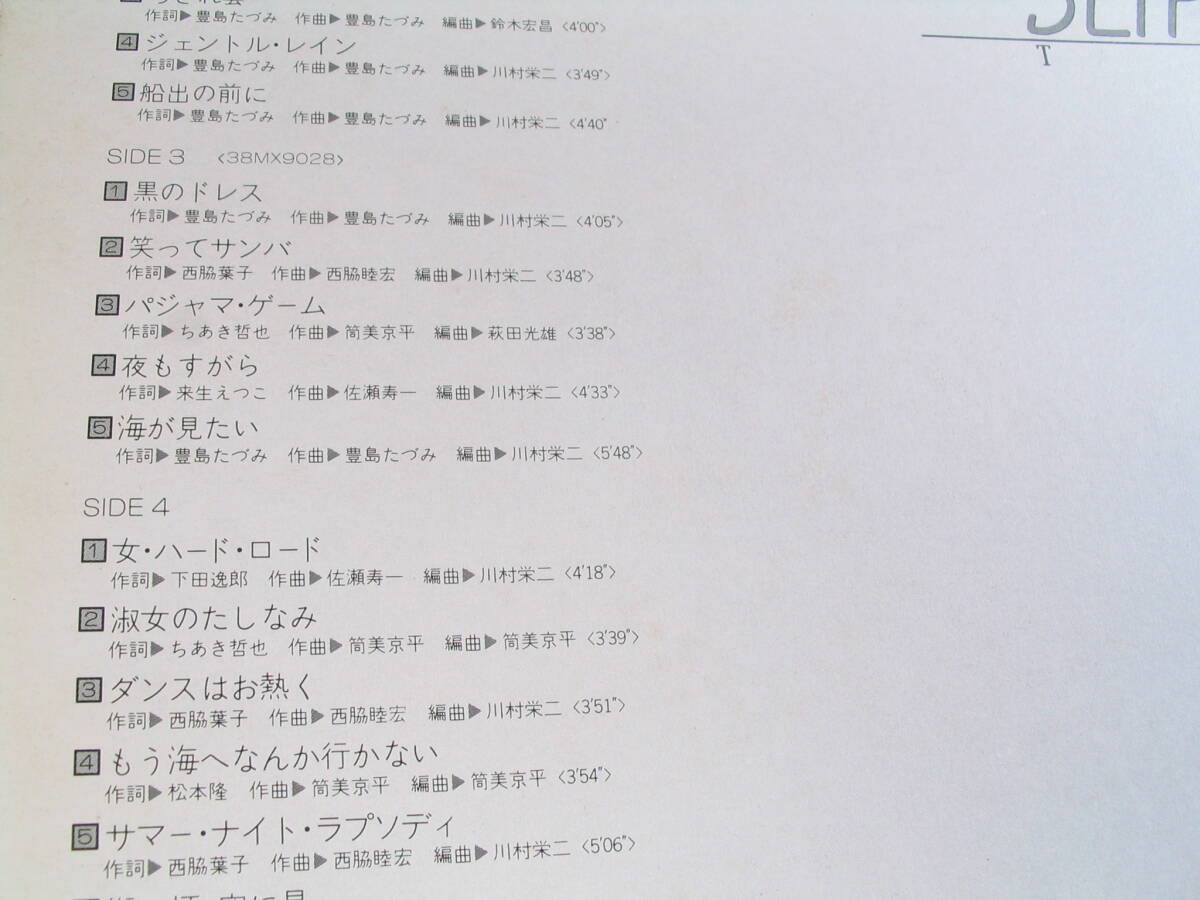 作詞▶豊島たづみ 作曲▶豊島たづみ 編曲▶鈴木宏昌〈4'00"〉
4 ジェントル・レイン
作詞▶豊島たづみ 作曲▶豊島たづみ 編曲▶川村栄二〈3'49"〉
5 船出の前に
作詞▶豊島たづみ 作曲▶豊島たづみ 編曲▶川村栄二〈4'40"
SIDE 3 〈38MX9028〉
1 黒のドレス
作詞▶豊島たづみ 作曲▶豊島たづみ 編曲▶川村栄二〈4'05"〉
2 笑ってサンバ
作詞▶西脇葉子 作曲▶西脇睦宏 編曲▶川村栄二〈3'48"〉
3 パジャマ・ゲーム
作詞▶ちあき哲也 作曲▶筒美京平 編曲▶萩田光雄〈3'38"〉
4 夜もすがら
作詞▶来生えつこ 作曲▶佐瀬寿一 編曲▶川村栄二〈4'33"〉
5 海が見たい
作詞▶豊島たづみ 作曲▶豊島たづみ 編曲▶川村栄二〈5'48"〉
SIDE 4
1 女・ハード・ロード
作詞▶下田逸郎 作曲▶佐瀬寿一 編曲▶川村栄二〈4'18"〉
2 淑女のたしなみ
作詞▶ちあき哲也 作曲▶筒美京平 編曲▶筒美京平〈3'39"〉
3 ダンスはお熱く
作詞▶西脇葉子 作曲▶西脇睦宏 編曲▶川村栄二〈3'51"〉
4 もう海へなんか行かない
作詞▶松本隆 作曲▶筒美京平 編曲▶筒美京平〈3'54"〉
5 サマー・ナイト・ラプソディ
作詞▶西脇葉子 作曲▶西脇睦宏 編曲▶川村栄二〈5'06"〉
T